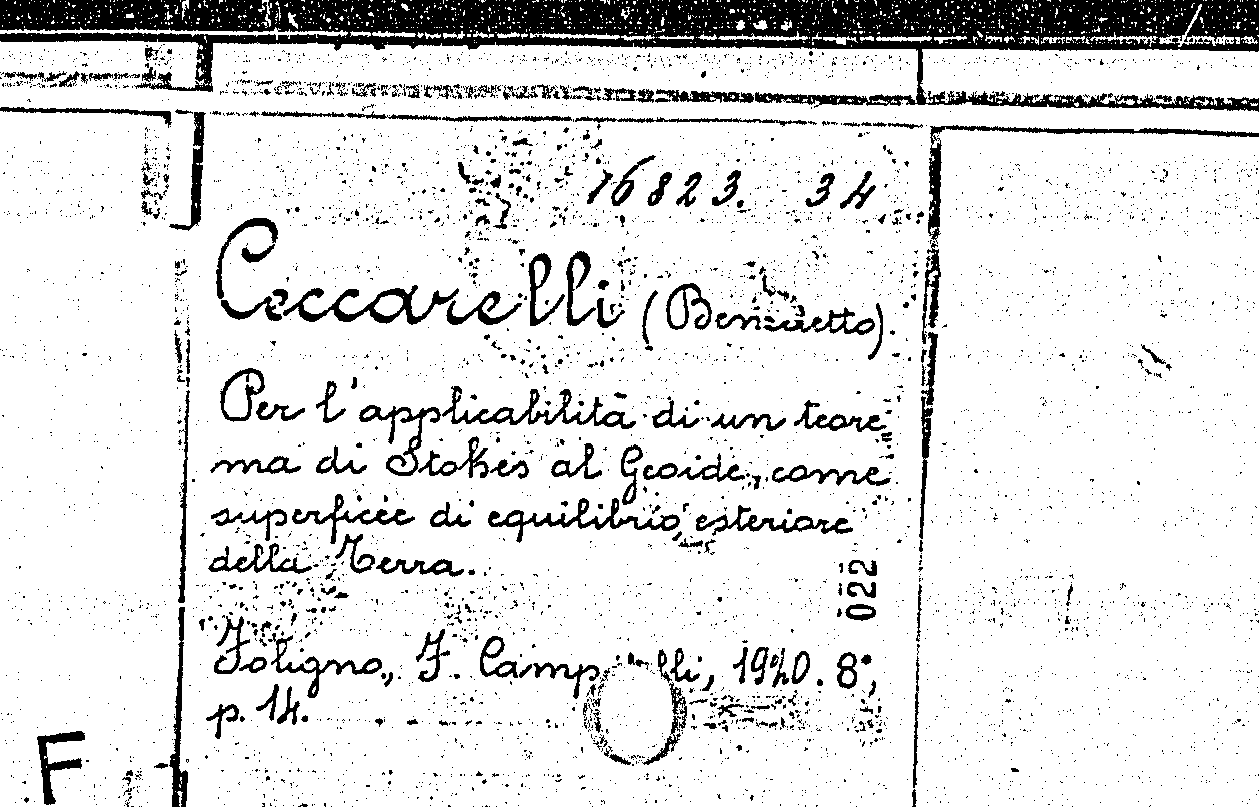 16823. 34
Ceccarelli (Benedetto).
Per l'applicabilità di un teore
ma di Stokes al Geoide, come
superficie di equilibrio, esteriore
della Terra.
022
Foligno, F. 1920. 8°,
p. 14.
F